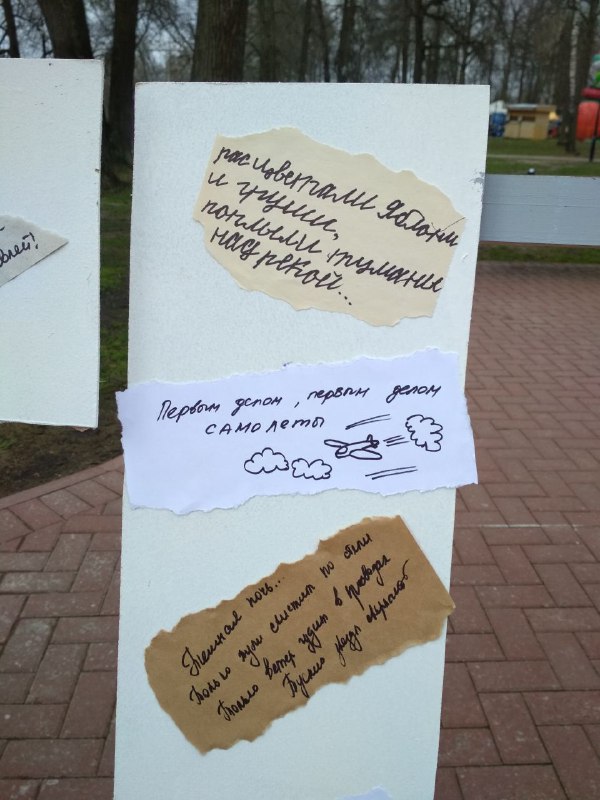 расцветали яблони
и груши,
поплыли туманы
над рекой...
Первым делом, первым делом
самолеты
Темная ночь...
Только пули свистят по степи
Только ветер гудит в проводах
Тускло звезды мерцают